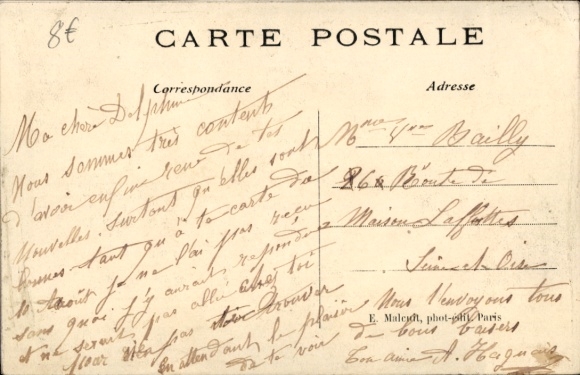 8€
CARTE POSTALE
Correspondance
Adresse
Ma chère Delphine
Nous sommes très contents
d'avoir enfin reçu de tes
nouvelles. surtant qu'elles sont
bonnes tant qu'à ta carte du
10 Août je ne l'ai pas reçu
sans quoi j'y aurais repondu
et ne serait pas allé chez toi
pour pas trouver
En attendant le plaisir
de te voir
Mme Vve Bailly
86 Route de
Maison Laffittes
Seine et Oise
Nous t'envoyons tous
E. Malcuit, phot-édit, Paris
de bons baisers
Ton amie A.